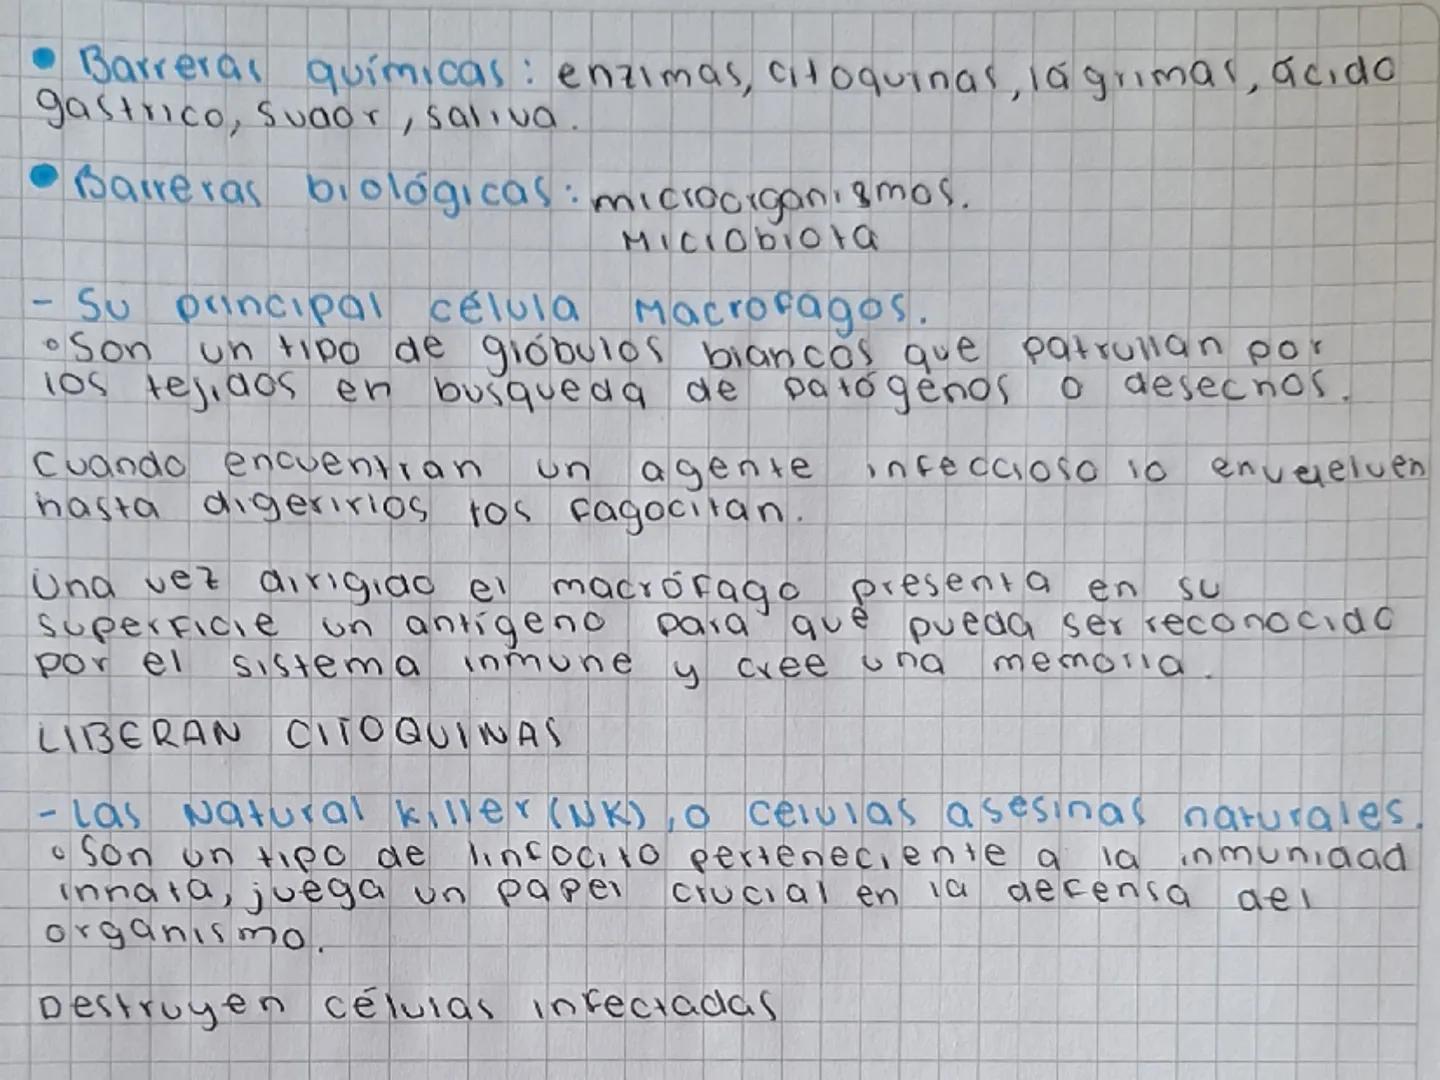 • Barreras químicas: enzimas, citoquinas, lágrimas, ácido
gastrico, sudor, saliva.
• Barreras biológicas: microorganismos.
Microbiota
- Su principal célula Macrofagos.
° Son un tipo de glóbulos blancos que patrullan por
los tejidos en busqueda de patógenos o desechos.
Cuando encuentran un agente infeccioso lo envuelven
hasta digerirlos los fagocitan.
Una vez dirigido el macrófago presenta en su
superficie un antígeno para que pueda ser reconocido
por el sistema inmune y cree una memoria.
LIBERAN CITOQUINAS
- Las Natural killer (NK), o celulas asesinas naturales.
° Son un tipo de linfocito perteneciente a la inmunidad
innata, juega un papel crucial en la defensa del
organismo.
Destruyen células infectadas